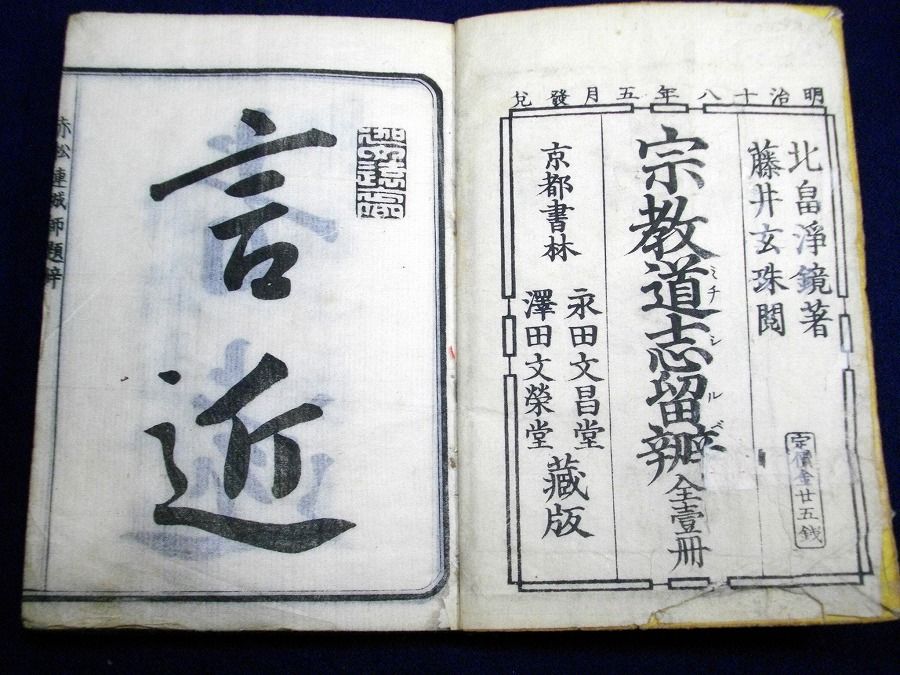 明治十八年五月發兌
北畠淨鏡著
藤井玄珠閲
定價金廿五錢
宗教道志留辨全壹冊
ミチシルベ
京都書林
永田文昌堂
澤田文榮堂
藏版
言近
赤松連城師題辞